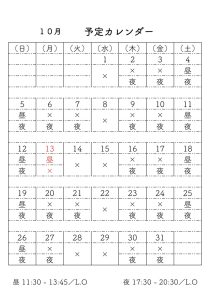 10月 予定カレンダー
(日) (月) (火) (水) (木) (金) (土)
1 2 3 4
× × × 昼
夜 夜 夜
5 6 7 8 9 10 11
昼 × × × × × 昼
夜 夜 夜 夜 夜 夜
12 13 14 15 16 17 18
昼 昼 × × × × 昼
夜 × 夜 夜 夜
19 20 21 22 23 24 25
昼 × × × × × 昼
夜 夜 夜 夜 夜 夜
26 27 28 29 30 31
昼 × × × × ×
夜 夜 夜 夜 夜
昼 11:30 - 13:45/L.O 夜 17:30 - 20:30/L.O